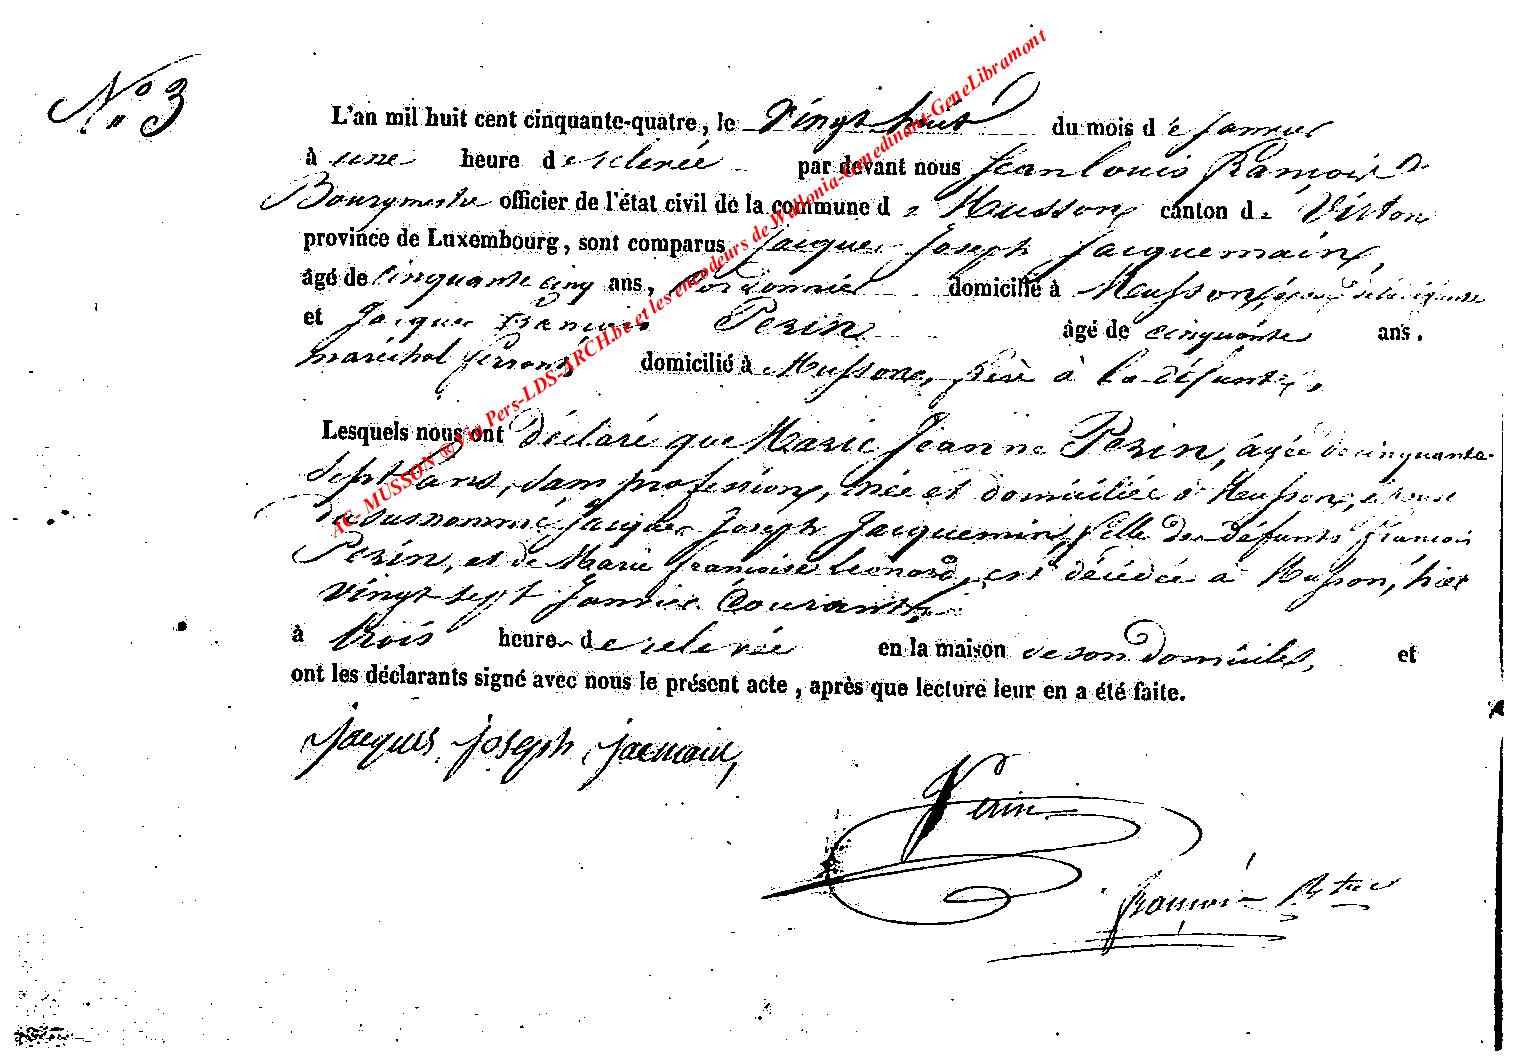 N° 3
L'an mil huit cent cinquante-quatre, le vingt huit du mois de Janvier
à une heure de relevée par devant nous Jean Louis François
Bourgmestre officier de l'état civil de la commune de Musson canton de Virton
province de Luxembourg, sont comparus Jacques Joseph Jacquemain,
âgé de cinquante cinq ans, Cordonnier domicilié à Musson, époux de la défunte
et Jacques François Perin âgé de cinquante ans.
maréchal ferrant, domicilié à Musson, frère à la défunte,
Lesquels nous ont déclaré que Marie Jeanne Perin, âgée de cinquante
sept ans, sans profession, née et domiciliée à Musson, épouse
du susnommé Jacques Joseph Jacquemin, fille des défunts François
Perin, et de Marie françoise Leonard, est décédée à Musson, hier
vingt sept Janvier Courant,
à trois heure de relevée en la maison de son domicile, et
ont les déclarants signé avec nous le présent acte, après que lecture leur en a été faite.
Jacques Joseph Jacmain,
Perin
François Btre
AC- MUSSON ® Via Pers-LDS-ARCH.be et les encodeurs de Wallonia-Genedinant-GeneLibramont